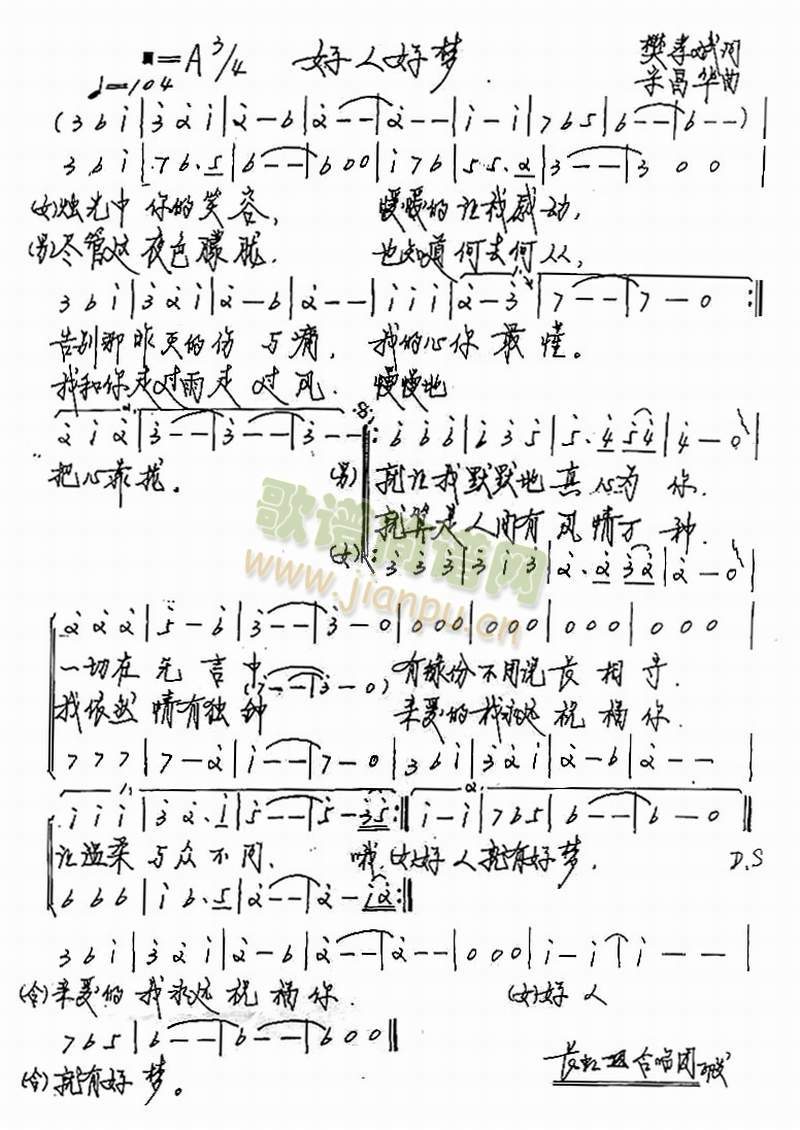 ■=A 3/4 好人好梦 樊孝斌词
♩=104 宋昌华曲
(3 6 i | 3 2 i | 2 - 6 | 2 - - | 2 - - | i - i | 7 6 5 | 6 - - | 6 - -) |
3 6 i | 7 6. 5 | 6 - - | 6 0 0 | i 7 6 | 5 5. 2 | 3 - - | 3 0 0 |
(女)烛光中 你的笑容, 暖暖的让我感动,
(男)尽管这夜色朦胧. 也知道何去何从,
3 6 i | 3 2 i | 2 - 6 | 2 - - | i i i | 2 - 3 | 7 - - | 7 - 0 :||
告别那昨天的伤与痛, 我的心你最懂。
我和你走过雨走过风. 慢慢地
2 i 2 | 3 - - | 3 - - | 3 - - ||: 6 6 6 | 6 3 5 | 5. 4 5 4 | 4 - 0 |
把心靠拢。 (男) 就让我默默地真心为你.
就算是人间有风情万种.
(女) : 3 3 3 | 3 i 3 | 2. 2 3 2 | 2 - 0 |
歌谱简谱网
www.jianpu.cn
2 2 2 | 5 - 6 | 3 - - | 3 - 0 | 0 0 0 | 0 0 0 | 0 0 0 | 0 0 0
一切在无言中 有缘份不用说长相守.
(7 - - | 3 - 0)
我依然情有独钟 亲爱的我永远祝福你.
7 7 7 | 7 - 2 | i - - | 7 - 0 | 3 6 i | 3 2 i | 2 - 6 | 2 - - |
i i i | 3 2. i | 5 - - | 5 - 3 5 :|| i - i | 7 6 5 | 6 - - | 6 - 0 ||
让温柔与众不同. 哦,(女)好人就有好梦. D.S
6 6 6 | i 6. 5 | 2 - - | 2 - i 2 :||
3 6 i | 3 2 i | 2 - 6 | 2 - - | 2 - - | 0 0 0 | i - i | i - - |
(合)亲爱的我永远祝福你. (女)好人
7 6 5 | 6 - - | 6 - - | 6 0 0 ||
(合)就有好梦。 合唱团